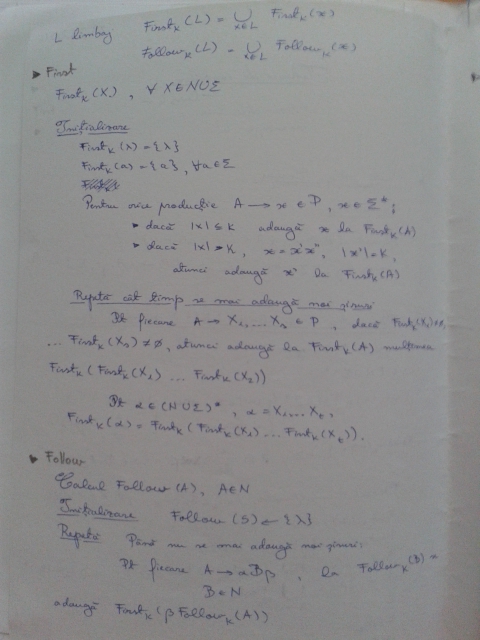 L limbaj First_K(L) = ∪_{x∈L} First_K(x)
Follow_K(L) = ∪_{x∈L} Follow_K(x)
▸ First
First_K(X), ∀ X∈N∪Σ
Inițializare
First_K(λ) = {λ}
First_K(a) = {a}, ∀a∈Σ
Pentru orice producție A → x ∈ P, x ∈ Σ*;
▸ dacă |x| ≤ K adaugă x la First_K(A)
▸ dacă |x| > K, x = x'x'', |x'| = K,
atunci adaugă x' la First_K(A)
Repetă cât timp se mai adaugă noi șiruri
Pt fiecare A → X₁,...X_s ∈ P, dacă First_K(X₁)≠∅,
... First_K(X_s) ≠ ∅, atunci adaugă la First_K(A) mulțimea
First_K(First_K(X₁) ... First_K(X_s))
Pt α ∈ (N∪Σ)*, α = X₁,...X_t,
First_K(α) = First_K(First_K(X₁)...First_K(X_t)).
▸ Follow
Calcul Follow(A), A∈N
Inițializare Follow(S) ← {λ}
Repetă Până nu se mai adaugă noi șiruri:
Pt fiecare A → αBβ, la Follow_K(B) =
B∈N
adaugă First_K(βFollow_K(A))